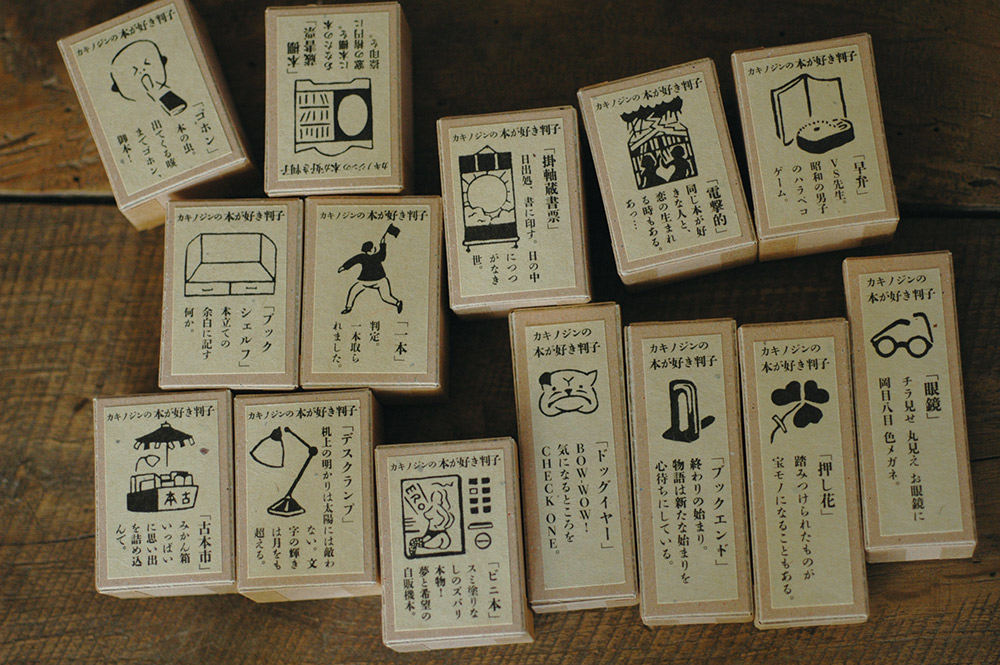 カキノジンの本が好き判子
「ゴホン」
本の虫。
出てくる咳
までゴホン、
御本!
カキノジンの本が好き判子
「本棚
蔵書票」
あなたの本
に本棚を。
窓の楕円に
捺印を。
カキノジンの本が好き判子
「掛軸蔵書票」
日出処、書に印す。日の中
につつ
がなき
世。
カキノジンの本が好き判子
「電撃的」
同じ本が好
きな人と、
恋の生まれ
る時もある。
あっ…
カキノジンの本が好き判子
「早弁」
VS先生。
昭和の男子
のハラペコ
ゲーム。
カキノジンの本が好き判子
「ブック
シェルフ」
本立ての
余白に記す
何か。
カキノジンの本が好き判子
「一本」
判定。
一本取ら
れました。
カキノジンの
本が好き判子
「眼鏡」
チラ見せ 丸見え お眼鏡に
岡目八目 色メガネ。
カキノジンの
本が好き判子
「ドッグイヤー」
BOW-WOW!
気になるところを
CHECK ONE。
カキノジンの
本が好き判子
「ブックエンド」
終わりの始まり。
物語は新たな始まりを
心待ちにしている。
カキノジンの
本が好き判子
「押し花」
踏みつけられたものが
宝モノになることもある。
カキノジンの本が好き判子
古本
「古本市」
みかん箱
いっぱい
に思い出
を詰め込
んで。
カキノジンの本が好き判子
「デスクランプ」
机上の明かりは太陽には敵わ
ない。文
字の輝き
は月をも
超える。
カキノジンの本が好き判子
ERO
「ビニ本」
スミ塗りな
しのズバリ
本物!
夢と希望の
自販機本。